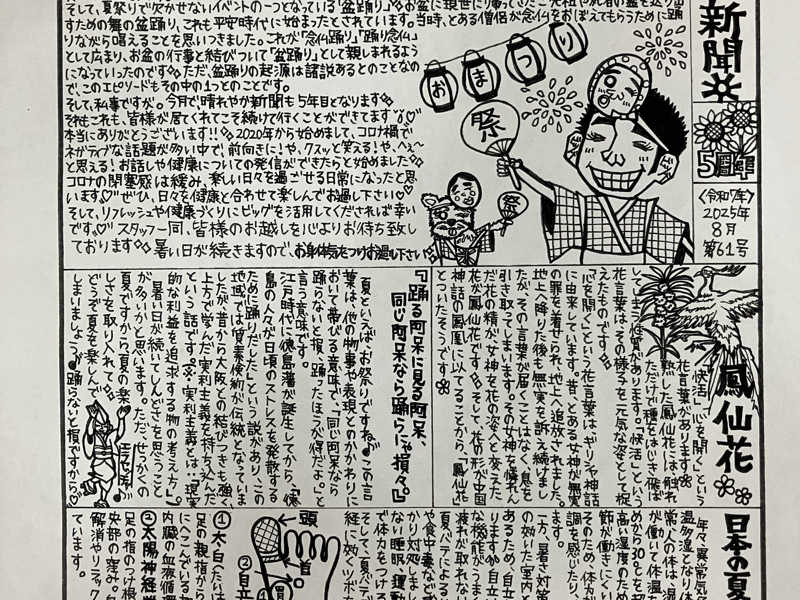 そして、夏祭りで欠かせないイベントの一つとなっている「盆踊り」
すための舞の盆踊り、これも平安時代に始まったとされています。当時、とある僧侶が念仏をおぼえてもらうために踊
りながら唱えることを思いつきました。これが「念仏踊り」「踊り念仏」
として広まり、お盆の行事と結びついて「盆踊り」として親しまれるよう
になっていったのです。ただ、盆踊りの起源は諸説あるとのことなの
で、このエピソードもその中の1つとのことです。
そして、私事ですが。今月で晴れやか新聞も5年目となります
それもこれも、皆様が居てくれてこそ続けて行くことができてます
本当にありがとうございます!!2020年から始めまして、コロナ禍で
ネガティブな話題が多い中で、前向きに!や、クスッと笑える!や、へぇ〜
と思える!お話しや健康についての発信ができたらと始めました
コロナの閉塞感は緩み、楽しい日々を過ごせる日常になったと思
います。ぜひ、日々を健康と合わせて楽しんでお過し下さい
そして、リフレッシュや健康づくりにビッグを活用してくだされば幸い
です。スタッフ一同、皆様のお越しを心よりお待ち致し
ております 暑い日が続きますので、お身体気をつけてお過し下さい
おまつり
祭
祭
新聞
5周年
〈令和7年〉
2025年
8月
第61号
鳳仙花
「快活」「心を開く」という
花言葉があります
熟した鳳仙花には触れ
ただけで種をはじき飛ば
してしまう性質があります。「快活」という
花言葉は、その様子を元気な姿として捉
えたものです
「心を開く」という花言葉は、ギリシャ神話
に由来しています。昔、とある女神が無実
の罪を着せられ、地上へ追放されました。
地上へ降りた後も無実を訴え続けまし
たが、その言葉が届くことはなく、息を
引き取ってしまいます。その女神を憐れん
だ花の精が女神を花の姿へと変えた
花が鳳仙花です。そして、花の形が中国
神話の鳳凰に似てることから、「鳳仙花」
とついたそうです
『踊る阿呆に見る阿呆、
同じ阿呆なら踊らにゃ損々。』
夏といえば、お祭りですね♪この言
葉は、他の物事や表現とのかかわりに
おいて帯びる意味で、「同じ阿呆なら
踊らないと損、踊ったほうが得だよ」と
言う意味です。
江戸時代に徳島藩が誕生してから、「徳
島の人々が日頃のストレスを発散する
ために踊りだした」という説があり、この
地域では質素倹約が伝統となっていま
したが昔から大阪との結びつきも強く、
上方で学んだ実利主義を持ち込んだ
という話です 実利主義とは…現実
的な利益を追求する物の考え方」。
暑い日が続いてしんどさを思うこと
が多いかと思います。ただ、せっかくの
夏ですから、夏の楽
しさを取り入れて
どうぞ夏を楽しんで
しまいましょう♪踊らないと損ですから
日本の夏
年々、異常気
温多湿となり、体
常、人の体は、湿
が働いて体温
から30℃を超
高い湿度のため
節が働きにくい
そのため、体力が
調を感じたり、
一方、暑さ対策
の効いた室内と
あるため、自立
ります
な機能がうま
疲れが取れな
夏バテによる
や食中毒など
かり対処しまし
ない睡眠、運動
で体力をつける
そして、夏バテ
経に効くツボ
頭
①太白(たいは
足の親指から
にへこんでいる
内臓の血液循環
②太陽神経叢
足の指のつけ根
央部の窪み。
解消やリラック
ています。